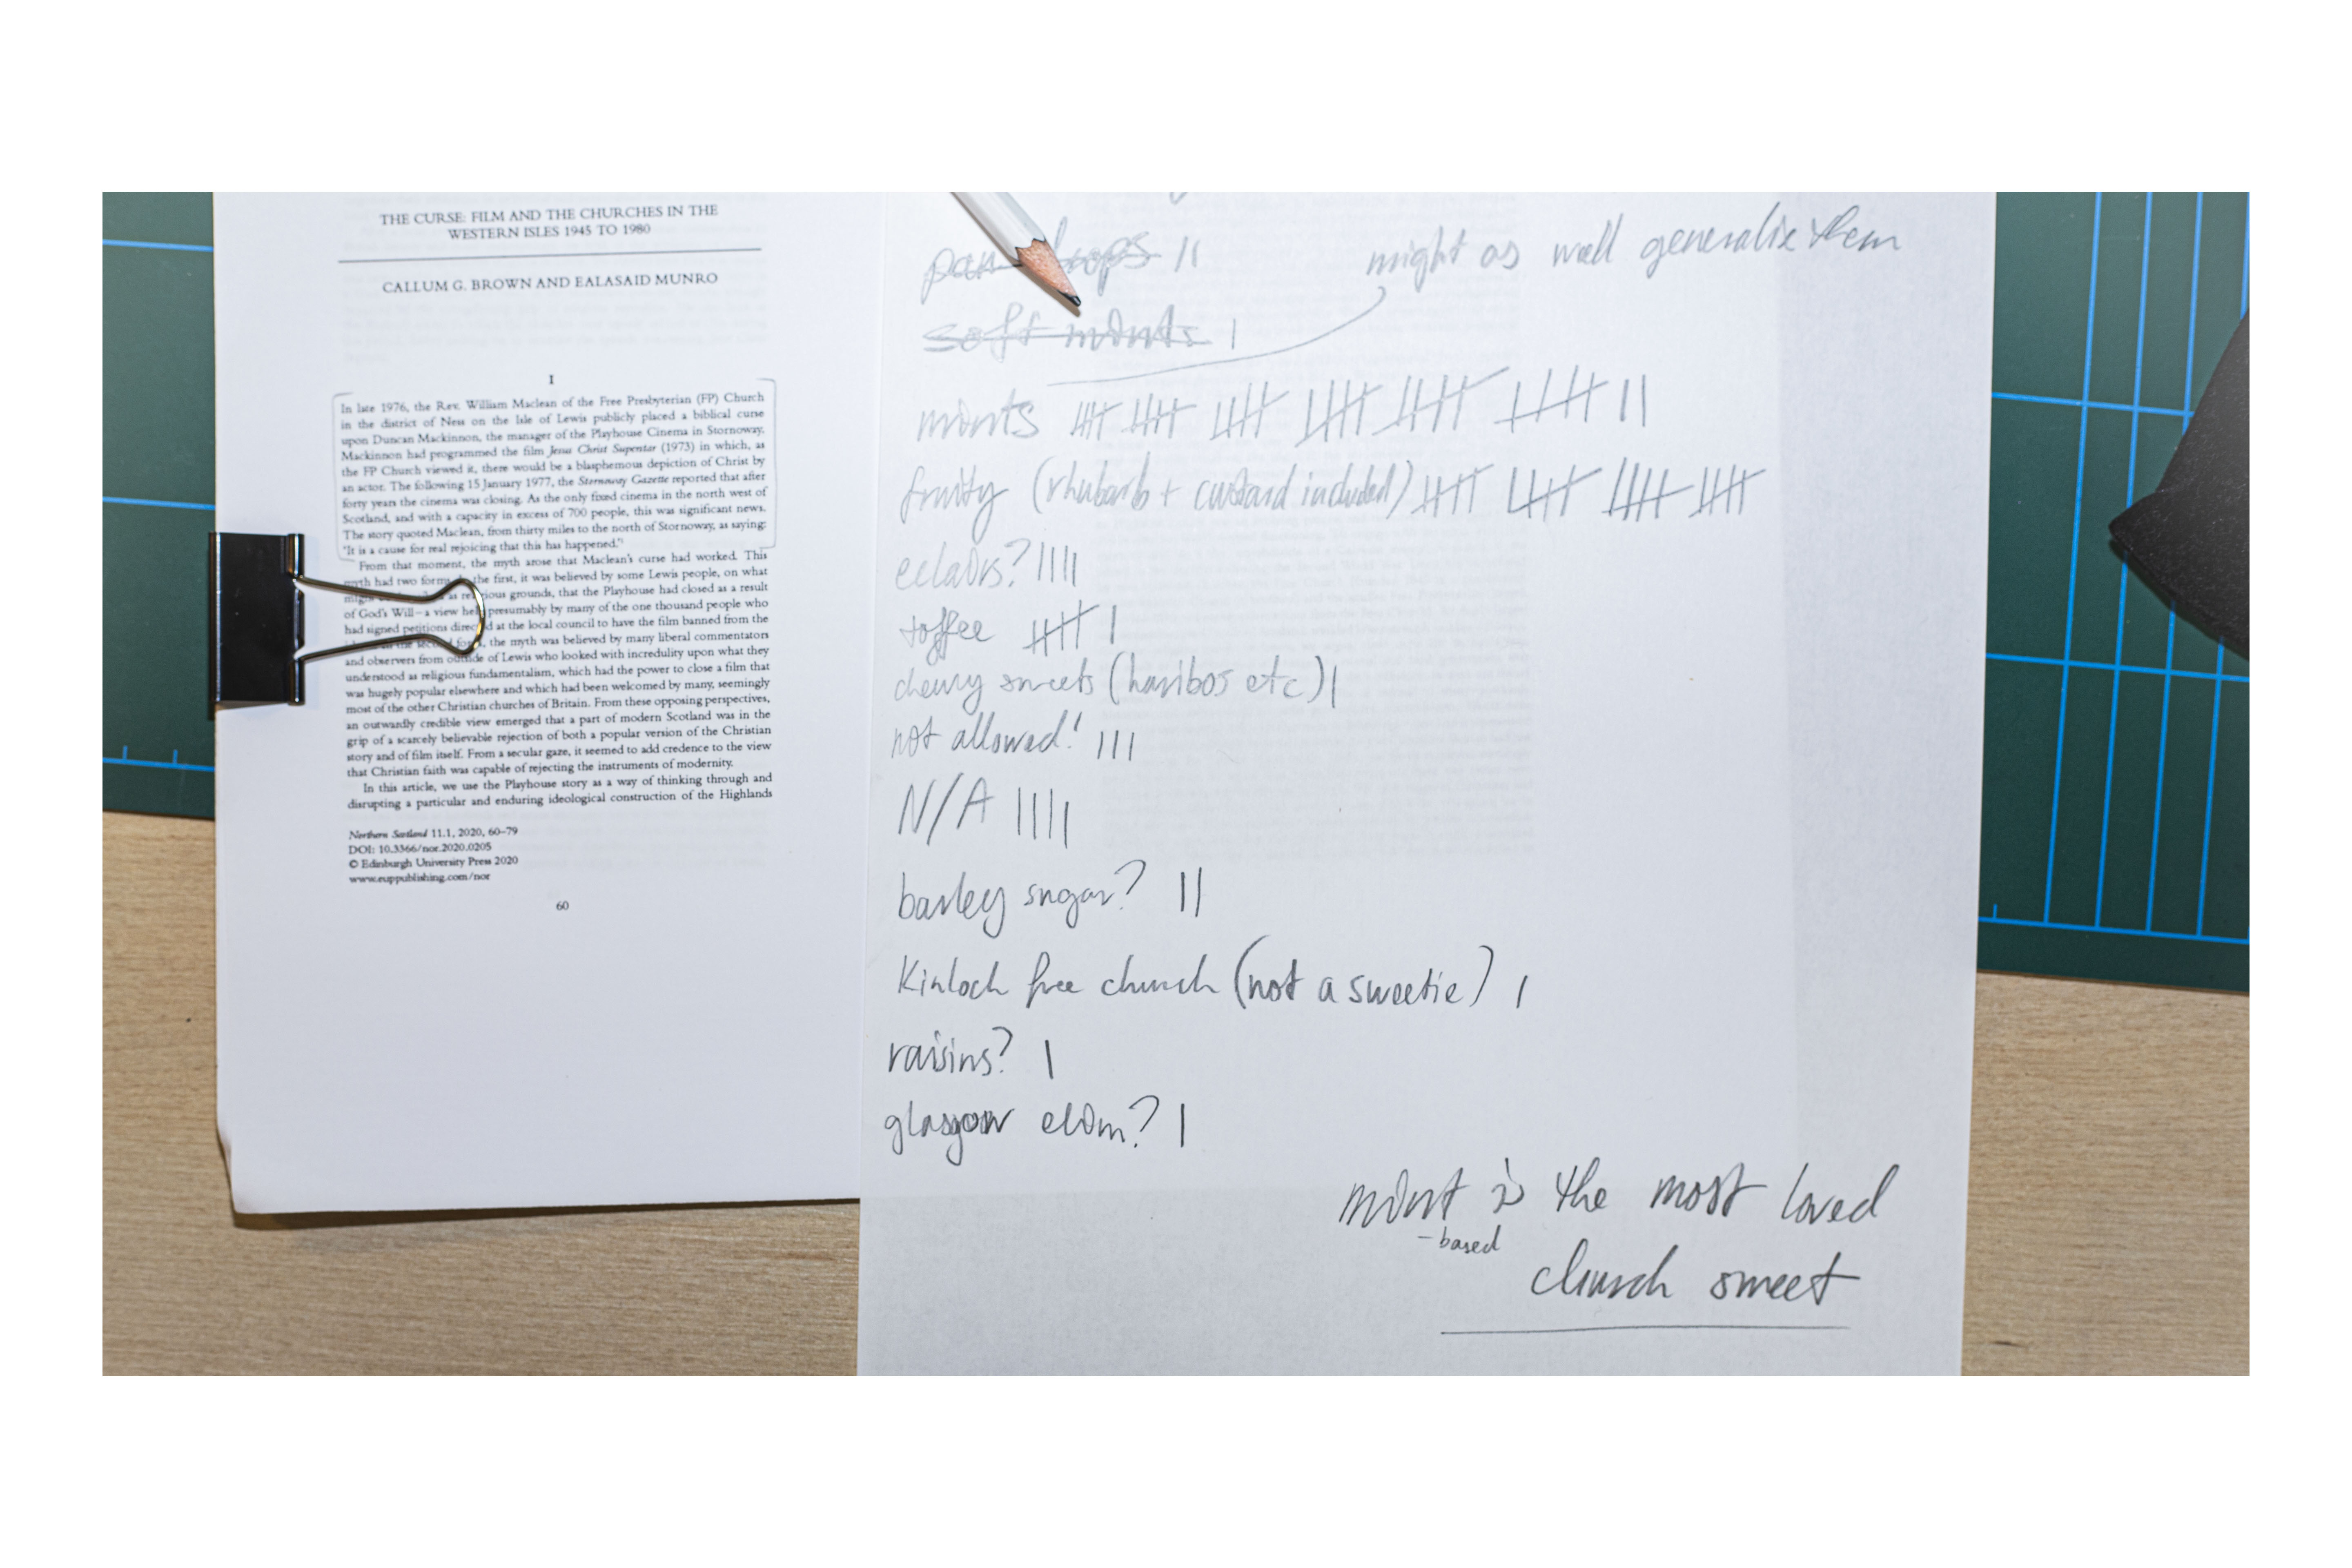 THE CURSE: FILM AND THE CHURCHES IN THE
WESTERN ISLES 1945 TO 1980
CALLUM G. BROWN AND EALASAID MUNRO
I
In late 1976, the Rev. William Maclean of the Free Presbyterian (FP) Church
in the district of Ness on the Isle of Lewis publicly placed a biblical curse
upon Duncan Mackinnon, the manager of the Playhouse Cinema in Stornoway.
Mackinnon had programmed the film Jesus Christ Superstar (1973) in which, as
the FP Church viewed it, there would be a blasphemous depiction of Christ by
an actor. The following 15 January 1977, the Stornoway Gazette reported that after
forty years the cinema was closing. As the only fixed cinema in the north west of
Scotland, and with a capacity in excess of 700 people, this was significant news.
The story quoted Maclean, from thirty miles to the north of Stornoway, as saying:
"It is a cause for real rejoicing that this has happened."1
From that moment, the myth arose that Maclean's curse had worked. This
myth had two forms. the first, it was believed by some Lewis people, on what
might as religious grounds, that the Playhouse had closed as a result
of God's Will – a view held presumably by many of the one thousand people who
had signed petitions directed at the local council to have the film banned from the
the second form, the myth was believed by many liberal commentators
and observers from outside of Lewis who looked with incredulity upon what they
understood as religious fundamentalism, which had the power to close a film that
was hugely popular elsewhere and which had been welcomed by many, seemingly
most of the other Christian churches of Britain. From these opposing perspectives,
an outwardly credible view emerged that a part of modern Scotland was in the
grip of a scarcely believable rejection of both a popular version of the Christian
story and of film itself. From a secular gaze, it seemed to add credence to the view
that Christian faith was capable of rejecting the instruments of modernity.
In this article, we use the Playhouse story as a way of thinking through and
disrupting a particular and enduring ideological construction of the Highlands
Northern Scotland 11.1, 2020, 60–79
DOI: 10.3366/nor.2020.0205
© Edinburgh University Press 2020
www.euppublishing.com/nor
60
pan drops ||
might as well generalise them
soft mints |
mints
fruity (rhubarb + custard included)
eclairs? ||||
toffee
chewy sweets (haribos etc) |
not allowed! |||
N/A ||||
barley sugar? ||
Kinloch free church (not a sweetie) |
raisins? |
glasgow |
mint is the most loved
-based
church sweet